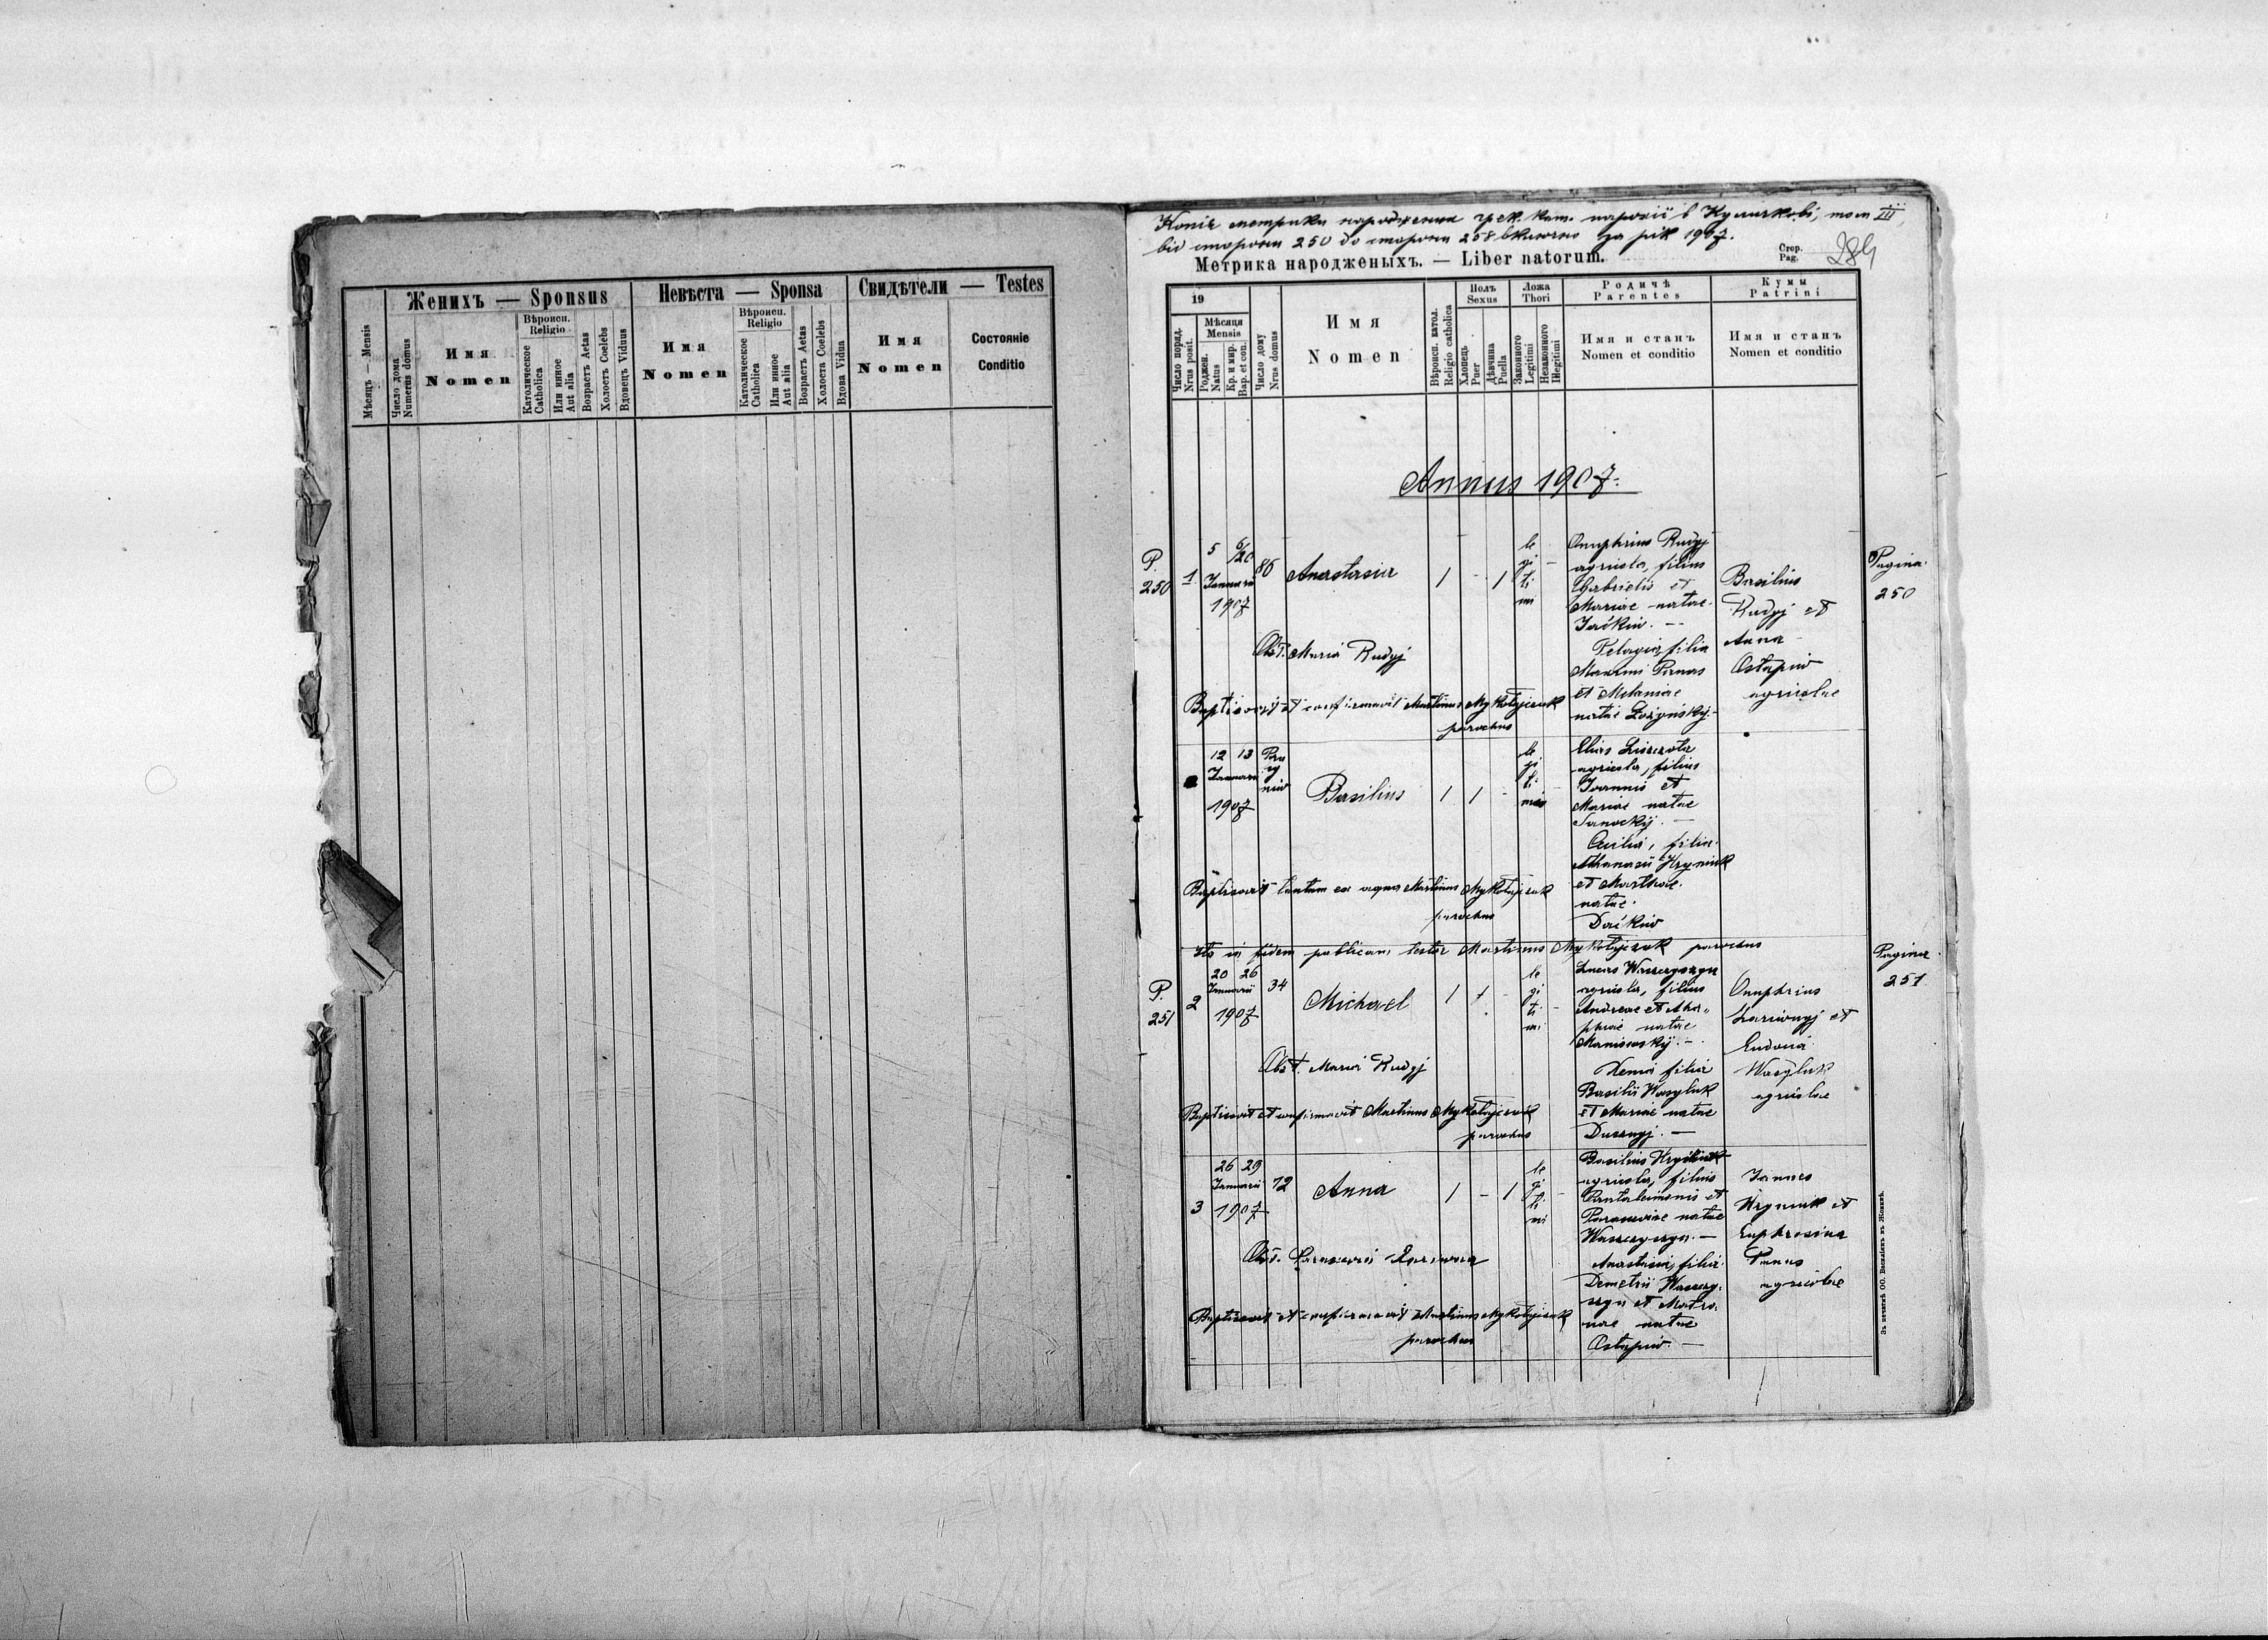 Женихъ — Sponsus
Невѣста — Sponsa
Свидѣтели — Testes
Мѣсяць — Mensis
Число дома
Numerus domus
Имя
Nomen
Вѣроисп.
Religio
Католическое
Catholica
Или инное
Aut alia
Возрастъ Aetas
Холостъ Coelebs
Вдовець Viduus
Имя
Nomen
Вѣроисп.
Religio
Католическое
Catholica
Или инное
Aut alia
Возрастъ Aetas
Холоста Coelebs
Вдова Vidua
Имя
Nomen
Состояніе
Conditio
Копія метрики народженя грек. кат. парохії в Куличкові, том III,
від сторони 250 до сторони 258 включно за рік 1907.
Метрика народженыхъ. — Liber natorum.
Стор.
Pag.
284
19
Число поряд.
Nrus posit.
Мѣсяця
Mensis
Роджен.
Natus
Кр. и мир.
Bap. et con.
Число дому
Nrus domus
Имя
Nomen
Вѣроисп. катол.
Religio catholica
Полъ
Sexus
Хлопець
Puer
Дѣвчина
Puella
Ложа
Thori
Законного
Legitimi
Незаконного
Illegitimi
Родичѣ
Parentes
Имя и станъ
Nomen et conditio
Кумы
Patrini
Имя и станъ
Nomen et conditio
Annus 1907.
P.
250
1
5 6/20
Januarii
1907
86
Anastasia
1 - 1
le
gi
ti
mi
Onuphrius Rudyj
agricola, filius
Gabrielis et
Mariae natae
Jackiw. —
Pelagia, filia
Maximi Panas
et Melaniae
natae Łozynskyj. —
Basilius
Rudyj et
Anna
Ostapiw
agricolae
Pagina
250
Obst. Maria Rudyj
Baptisavit et confirmavit Martinus Mykołajczuk
parochus
12 13
Januarii
1907
Basilius
1 1 -
le
gi
ti
mi
Elias
agricola, filius
Joannis et
Mariae natae
Sanockyj. —
filia
Athanasii Hryniuk
et Marthae
natae
Dackiw
Baptisavit tantum ex aqua Martinus Mykołajczuk
parochus
Ita in fidem publicam testor Martinus Mykołajczuk parochus
P.
251
2
20 26
Januarii
1907
34
Michael
1 1 -
le
gi
ti
mi
Lucas Waszczyszyn
agricola, filius
Andreae et Aga-
phiae natae
Xenia filia
Basilii Wasyluk
et Mariae natae
Onuphrius
et
Eudoxia
Wasyluk
agricolae
Pagina
251
Obst. Maria Rudyj
Baptisavit et confirmavit Martinus Mykołajczuk
parochus
3
26 29
Januarii
1907
72
Anna
1 - 1
le
gi
ti
mi
Basilius
agricola, filius
Pantaleimonis et
Parasceviae natae
Waszczyszyn. —
Anastasia, filia
Demetrii Waszczy-
szyn et Matro-
nae natae
Ostapiw. —
Joannes
Hryniuk et
Euphrosina
Panas
agricolae
Obst. Parascevia
Baptisavit et confirmavit Martinus Mykołajczuk
parochus
Зъ печатнѣ ОО. Василіянъ въ Жовквѣ.